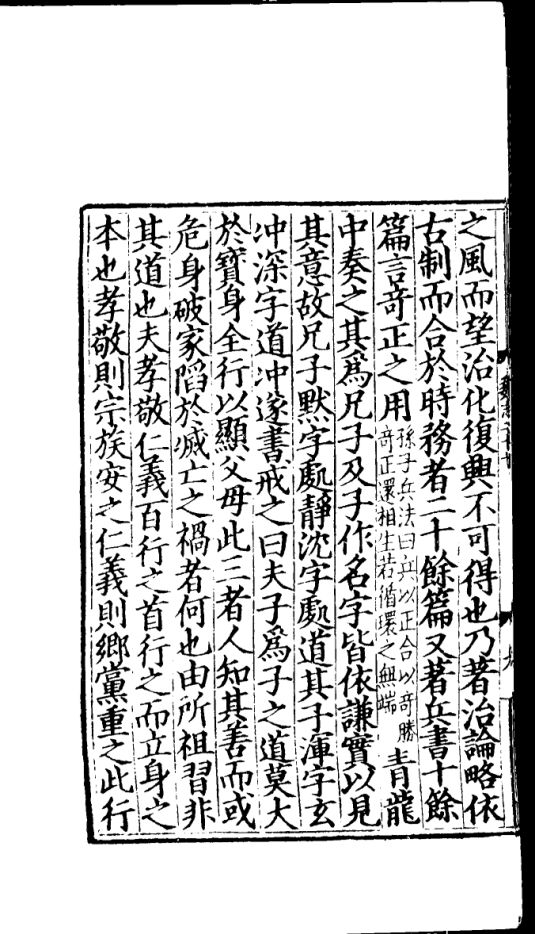 之風而望治化復興不可得也乃著治論略依
古制而合於時務者二十餘篇又著兵書十餘
篇言奇正之用
孫子兵法曰兵以正合以奇勝
奇正還相生若循環之無端
青龍
中奏之其爲兄子及子作名字皆依謙實以見
其意故兄子默字處靜沈字處道其子渾字玄
冲深字道冲遂書戒之曰夫子爲子之道莫大
於寶身全行以顯父母此三者人知其善而或
危身破家陷於滅亡之禍者何也由所祖習非
其道也夫孝敬仁義百行之首行之而立身之
本也孝敬則宗族安之仁義則鄉黨重之此行